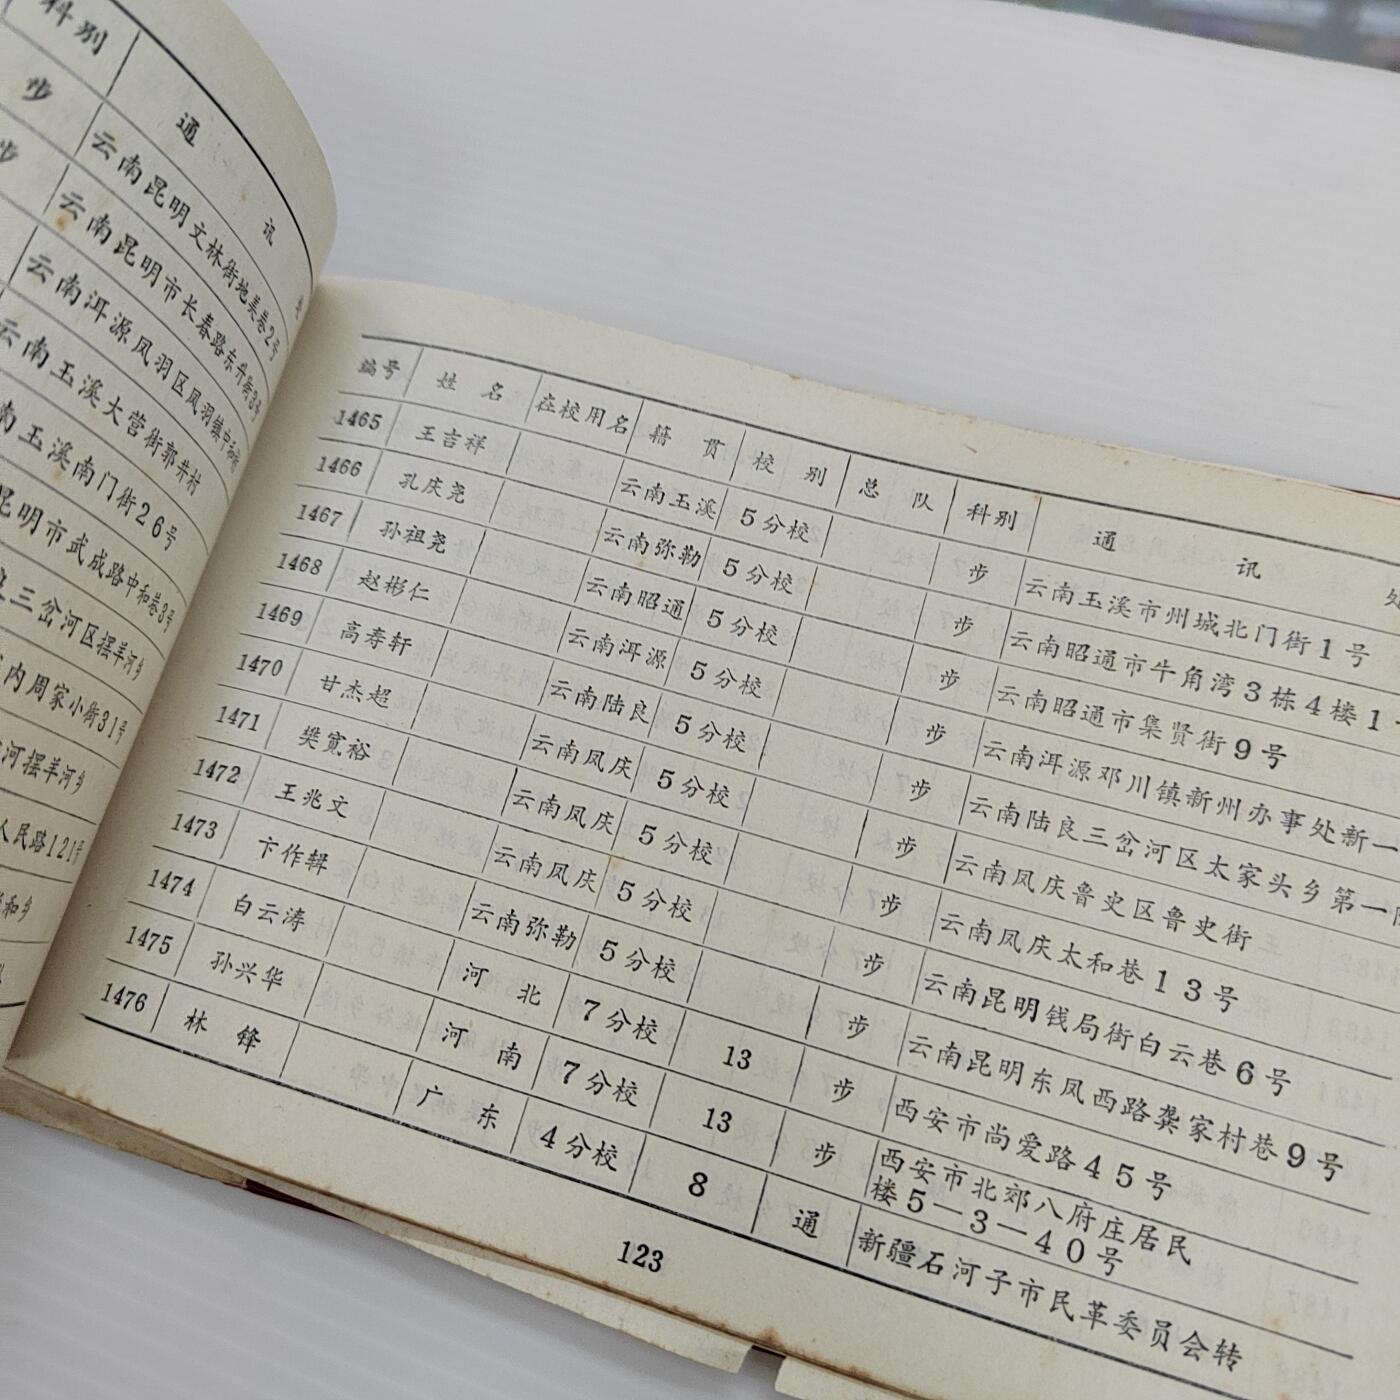 科别 通 讯
步 云南昆明文林街地美巷2号
步 云南昆明市长春路东升街3号
云南洱源凤羽区凤羽镇中和
云南玉溪大营街郭井村
南玉溪南门街26号
昆明市武成路中和巷3号
三岔河区摆羊河乡
内周家小街31号
河摆羊河乡
人民路121号
和乡
编号 姓名 在校用名 籍贯 校别 总队 科别 通 讯 处
1465 王吉祥 云南玉溪 5分校 步 云南玉溪市州城北门街1号
1466 孔庆尧 云南弥勒 5分校 步 云南昭通市牛角湾3栋4楼1
1467 孙祖尧 云南昭通 5分校 步 云南昭通市集贤街9号
1468 赵彬仁 云南洱源 5分校 步 云南洱源邓川镇新州办事处新一
1469 高寿轩 云南陆良 5分校 步 云南陆良三岔河区太家头乡第一
1470 甘杰超 云南凤庆 5分校 步 云南凤庆鲁史区鲁史街
1471 樊宽裕 云南凤庆 5分校 步 云南凤庆太和巷13号
1472 王兆文 云南凤庆 5分校 步 云南昆明钱局街白云巷6号
1473 卞作辑 云南弥勒 5分校 步 云南昆明东风西路龚家村巷9号
1474 白云涛 河北 7分校 13 步 西安市尚爱路45号
1475 孙兴华 河南 7分校 13 步 西安市北郊八府庄居民
楼5—3—40号
1476 林锋 广东 4分校 8 通 新疆石河子市民革委员会转
123